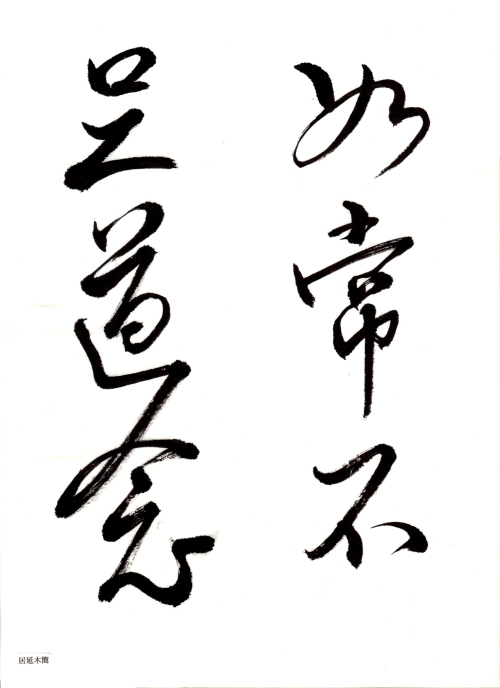 如常不
足道念
居延木簡